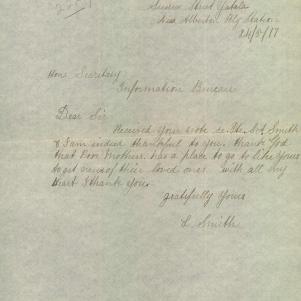 Surrey Street Yatala
Near Alberton Rly Station
24/8/17
Hon. Secretary
Information Bureau
Dear Sir
Received Your note re Pte A.A. Smith
& I am indeed thankful to you. thank God
that Poor Mothers has a place to go to like Yours
to get news of their loved ones. with all my
Heart I thank You.
gratefully Yours
L Smith